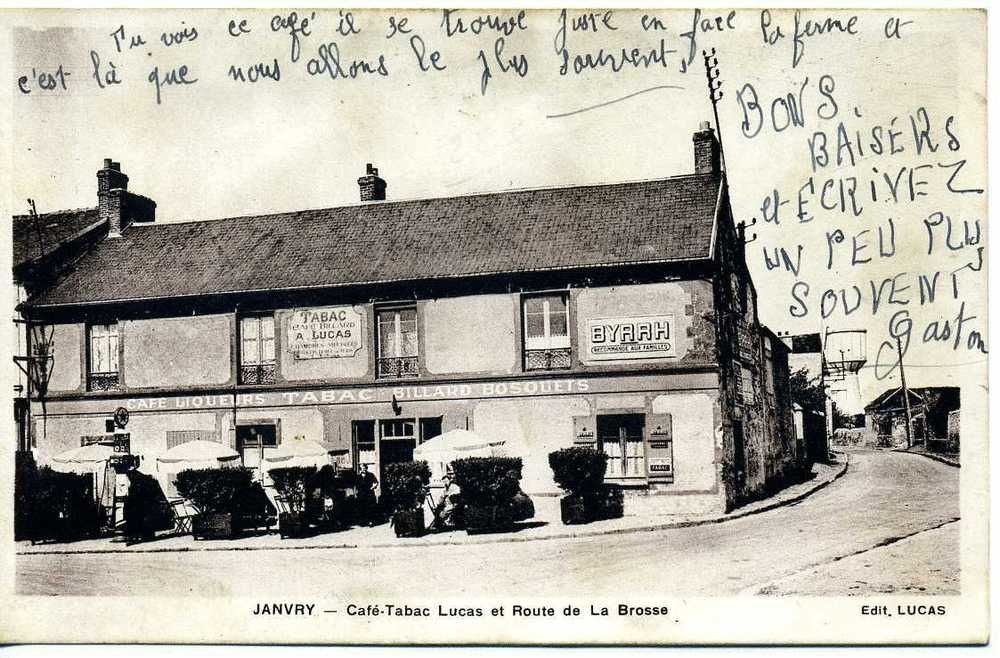 Tu vois ce café il se trouve juste en face la ferme et
c'est là que nous allons le plus souvent,
BONS
BAISÉRS
et ÉCRIVEZ
UN PEU PLUS
SOUVENT
Gaston
TABAC
CAFÉ BILLARD
A. LUCAS
BYRRH
RECOMMANDÉ AUX FAMILLES
CAFE LIQUEURS TABAC BILLARD BOSQUETS
TABAC
JANVRY — Café-Tabac Lucas et Route de La Brosse
Edit. LUCAS